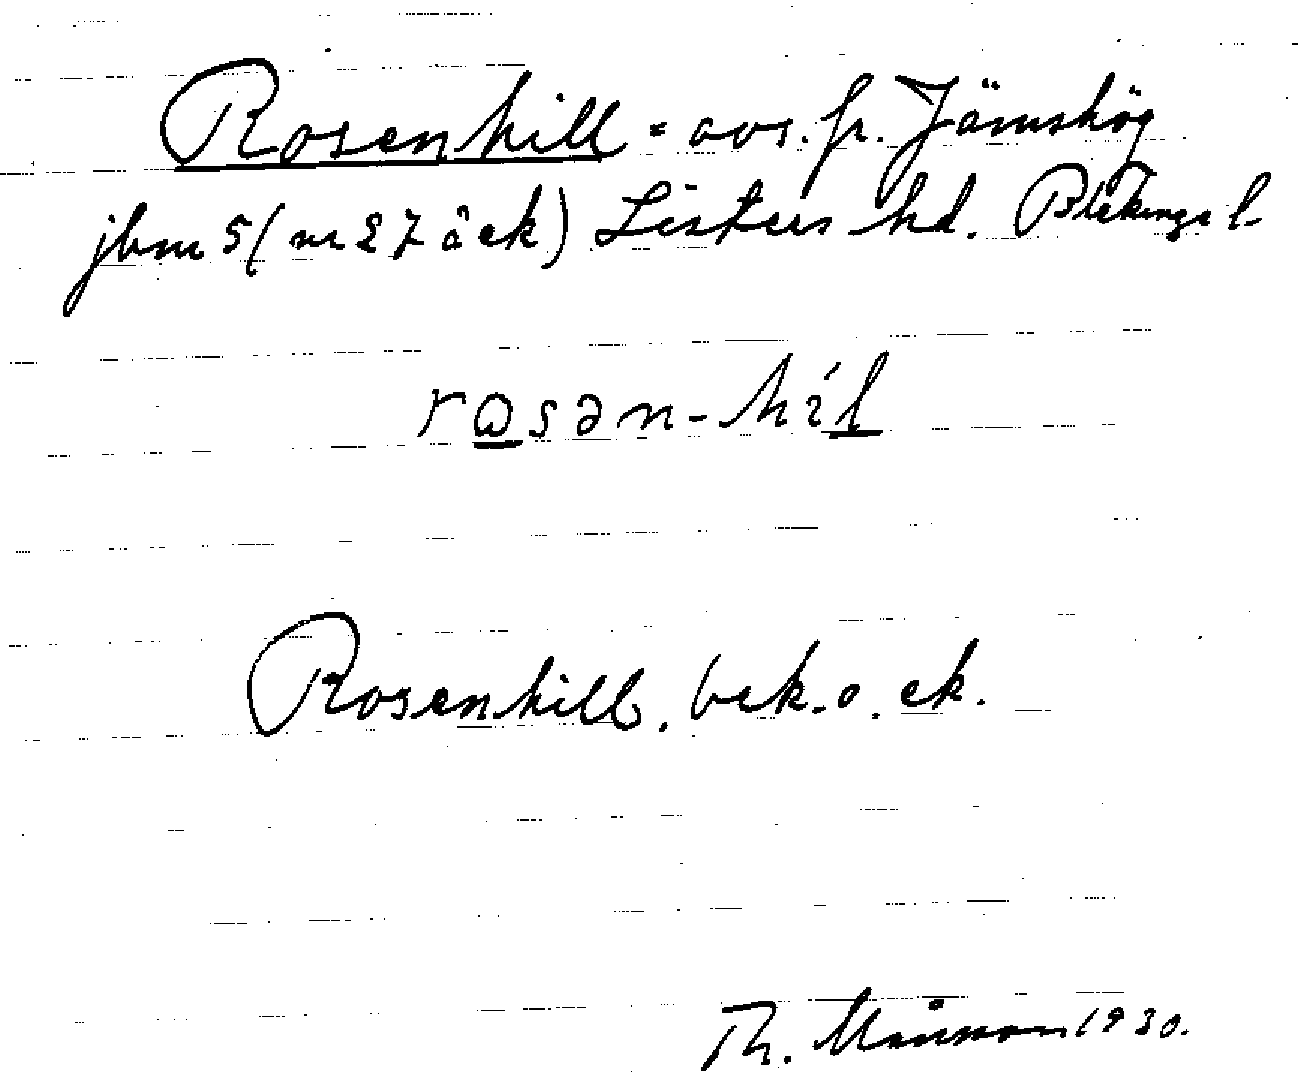 Rosenhill = avs. fr. Jämshög
jbm 5 (nr 27 äck) Listers hd. Blekinge l.
rɷsən-híl
Rosenhill. bek. o. ek.
Th. 1930.